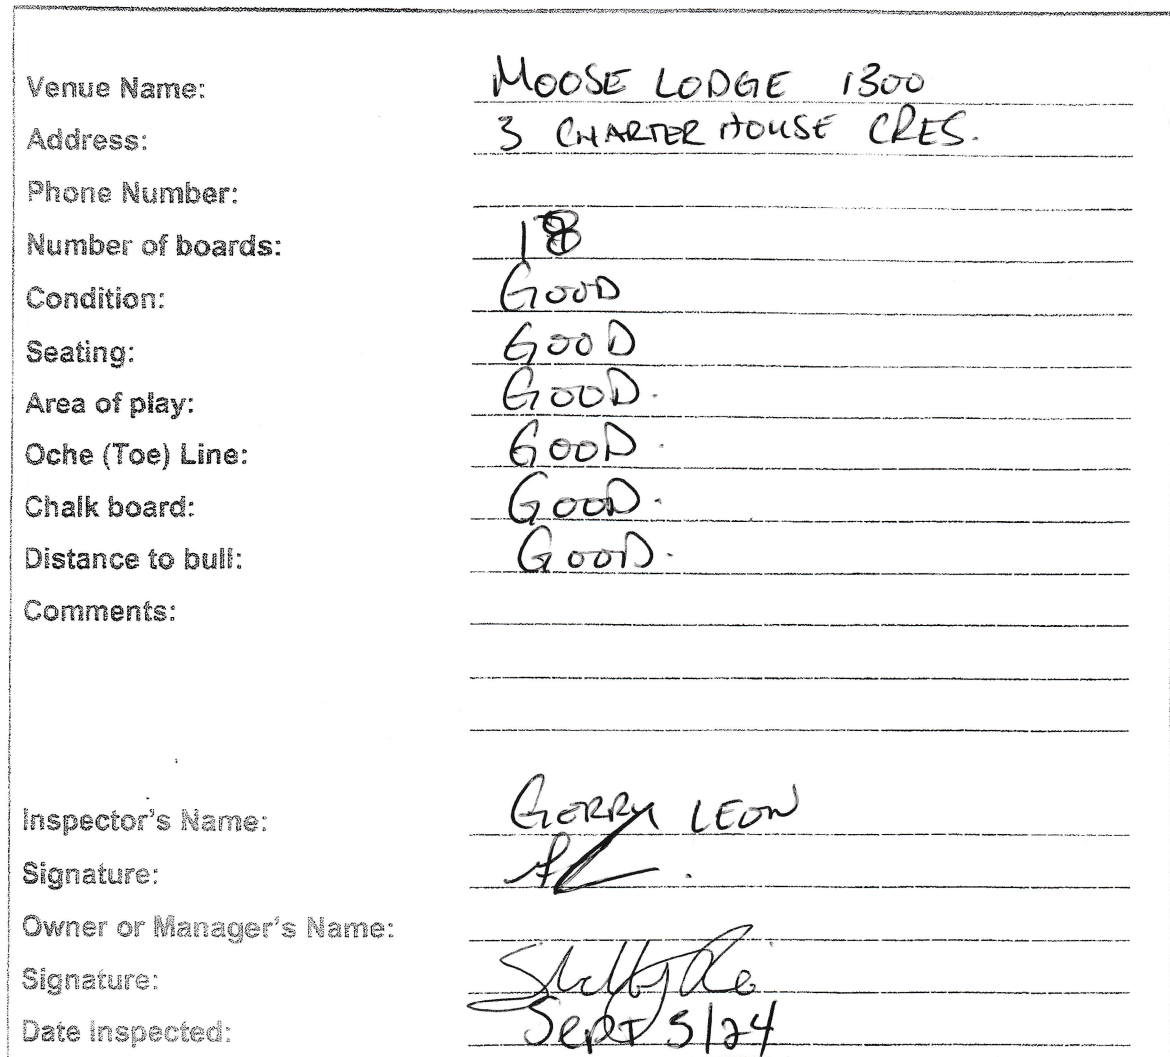 Venue Name: MOOSE LODGE 1300
Address: 3 CHARTER HOUSE CRES.
Phone Number:
Number of boards: 18
Condition: GOOD
Seating: GOOD
Area of play: GOOD.
Oche (Toe) Line: GOOD.
Chalk board: GOOD.
Distance to bull: GOOD.
Comments:
Inspector's Name: GERRY LEON
Signature:
Owner or Manager's Name:
Signature:
Date Inspected: Sept 5/24